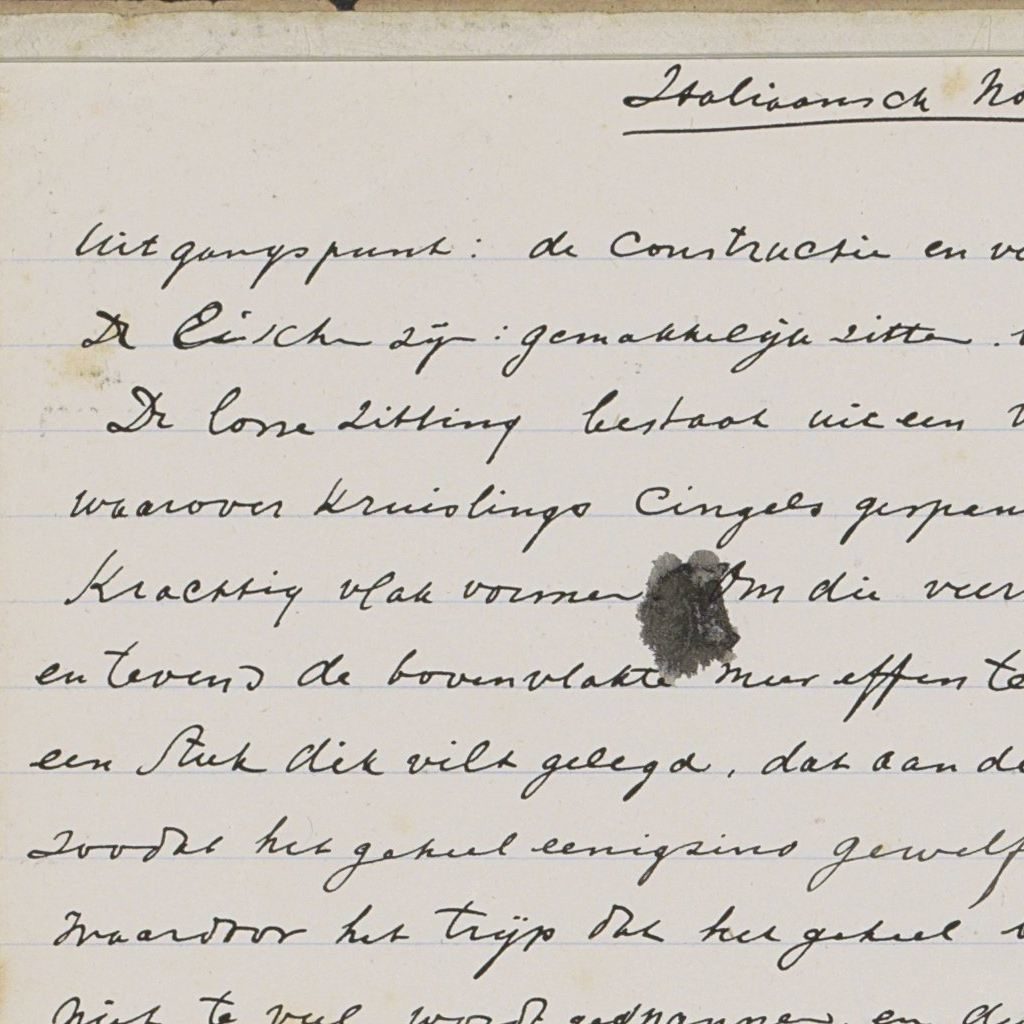 Italiaansch No
Uitgangspunt: de Constructie en ve
De Eischen zijn: gemakkelijk zitten.
De losse zitting bestaat uit een
waarover Kruislings Cingels gespan
Krachtig vlak vormen Om die veer
en tevens de bovenvlakte meer effen te
een Stuk dik vilt gelegd, dat aan de
zoodat het geheel eenigszins gewelf
waardoor het trijp dat het geheel
niet te veel wordt gespannen en de